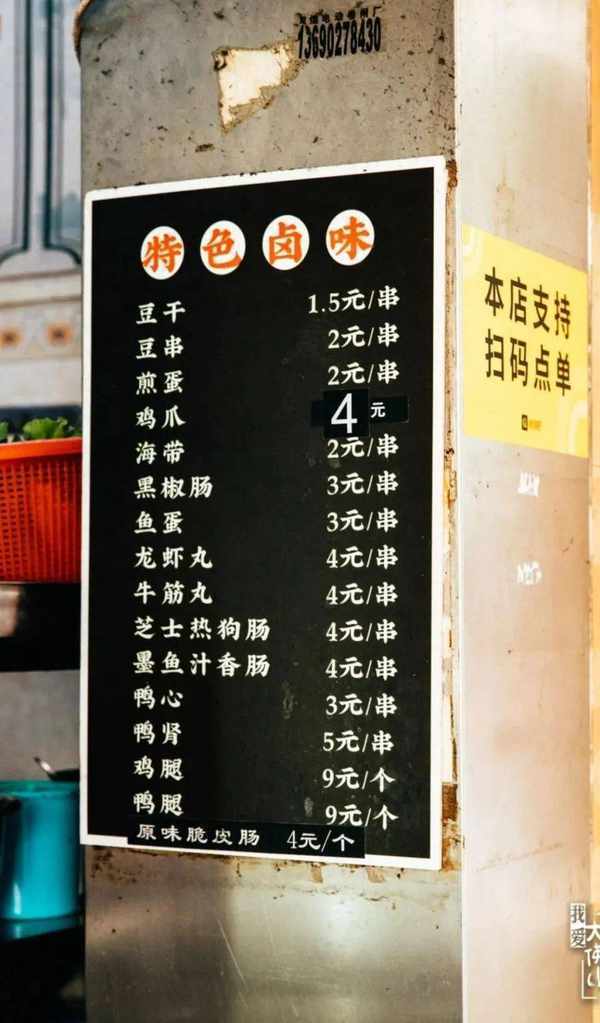 13690278430
特色卤味
豆干 1.5元/串
豆串 2元/串
煎蛋 2元/串
鸡爪 4元
海带 2元/串
黑椒肠 3元/串
鱼蛋 3元/串
龙虾丸 4元/串
牛筋丸 4元/串
芝士热狗肠 4元/串
墨鱼汁香肠 4元/串
鸭心 3元/串
鸭肾 5元/串
鸡腿 9元/个
鸭腿 9元/个
原味脆皮肠 4元/个
本店支持
扫码点单
我爱
大佛山